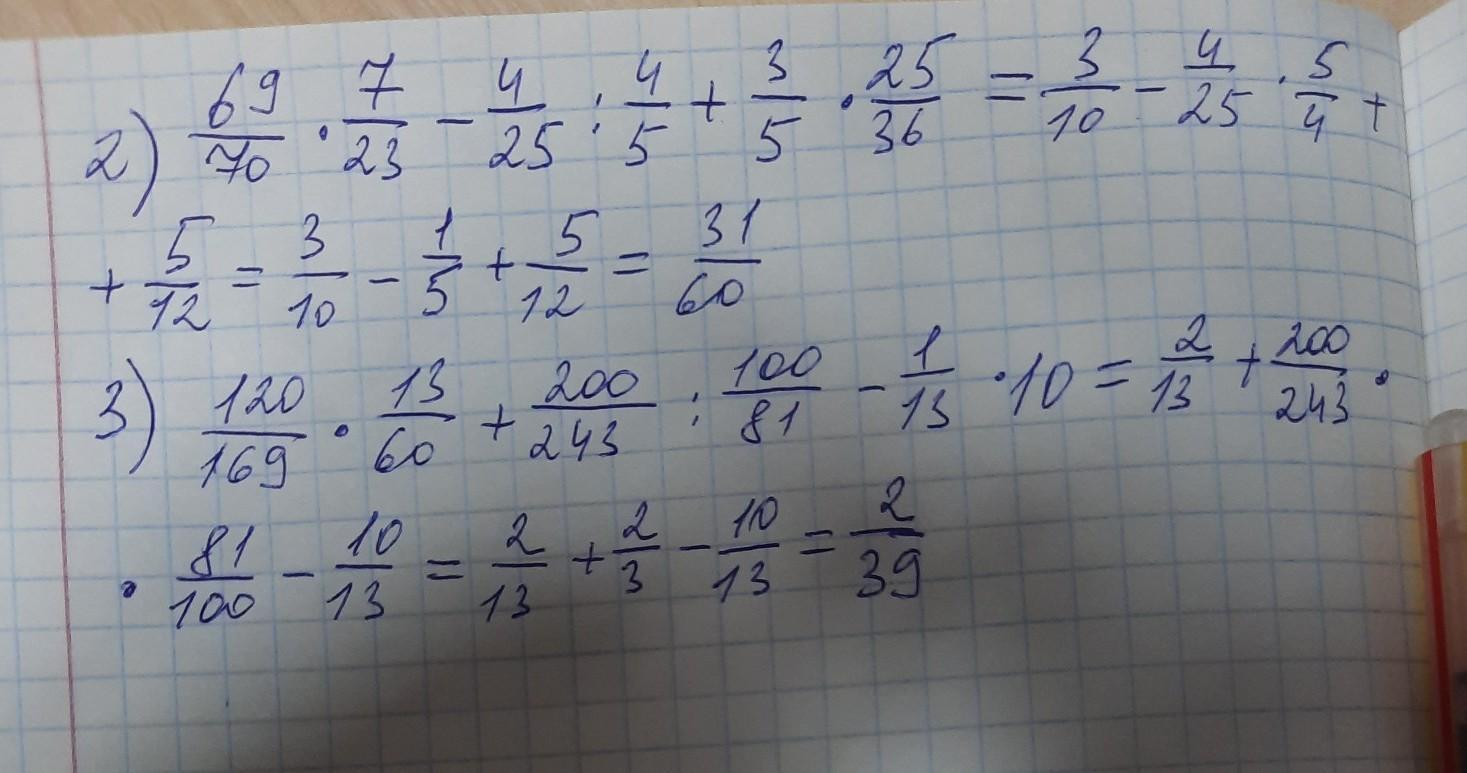 2) 69/70 · 7/23 - 4/25 : 4/5 + 3/5 · 25/36 = 3/10 - 4/25 · 5/4 +
+ 5/12 = 3/10 - 1/5 + 5/12 = 31/60
3) 120/169 · 13/60 + 200/243 : 100/81 - 1/13 · 10 = 2/13 + 200/243 ·
· 81/100 - 10/13 = 2/13 + 2/3 - 10/13 = 2/39